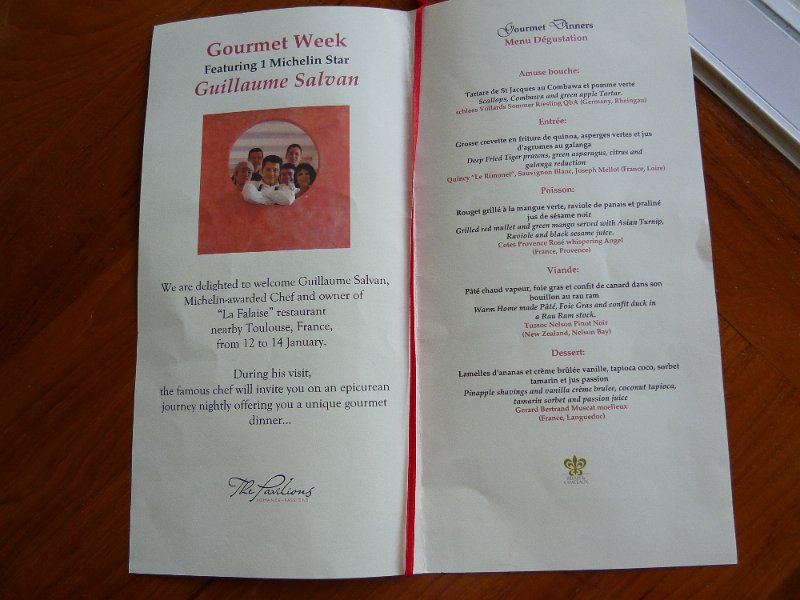 Gourmet Week
Featuring 1 Michelin Star
Guillaume Salvan
We are delighted to welcome Guillaume Salvan,
Michelin-awarded Chef and owner of
"La Falaise" restaurant
nearby Toulouse, France,
from 12 to 14 January.
During his visit,
the famous chef will invite you on an epicurean
journey nightly offering you a unique gourmet
dinner...
The Pavilions
Gourmet Dinners
Menu Dégustation
Amuse bouche:
Tartare de St Jacques au Combawa et pomme verte
Scallops, Combawa and green apple Tartar.
Vollards Sommer Riesling QbA (Germany, Rheingau)
Entrée:
Grosse crevette en friture de quinoa, asperges vertes et jus
d'agrumes au galanga
Deep Fried Tiger prawns, green asparagus, citrus and
galanga reduction
Quincy "Le Rimonet", Sauvignon Blanc, Joseph Mellot (France, Loire)
Poisson:
Rouget grillé à la mangue verte, raviole de panais et praliné
jus de sésame noir
Grilled red mullet and green mango served with Asian Turnip,
Raviole and black sesame juice.
Cotes Provence Rosé whispering Angel
(France, Provence)
Viande:
Pâté chaud vapeur, foie gras et confit de canard dans son
bouillon au rau ram
Warm Home made Pâté, Foie Gras and confit duck in
a Rau Ram stock.
Tussoc Nelson Pinot Noir
(New Zealand, Nelson Bay)
Dessert:
Lamelles d'ananas et crème brûlée vanille, tapioca coco, sorbet
tamarin et jus passion
Pinapple shavings and vanilla crème brulee, coconut tapioca,
tamarin sorbet and passion juice
Gerard Bertrand Muscat moelleux
(France, Languedoc)
RELAIS &
CHATEAUX